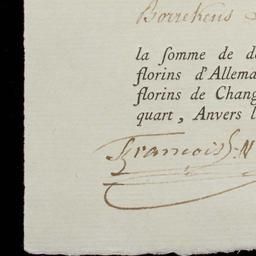 Borrekens
la somme de d
florins d'Allema
florins de Chang
quart, Anvers l
Francois-N